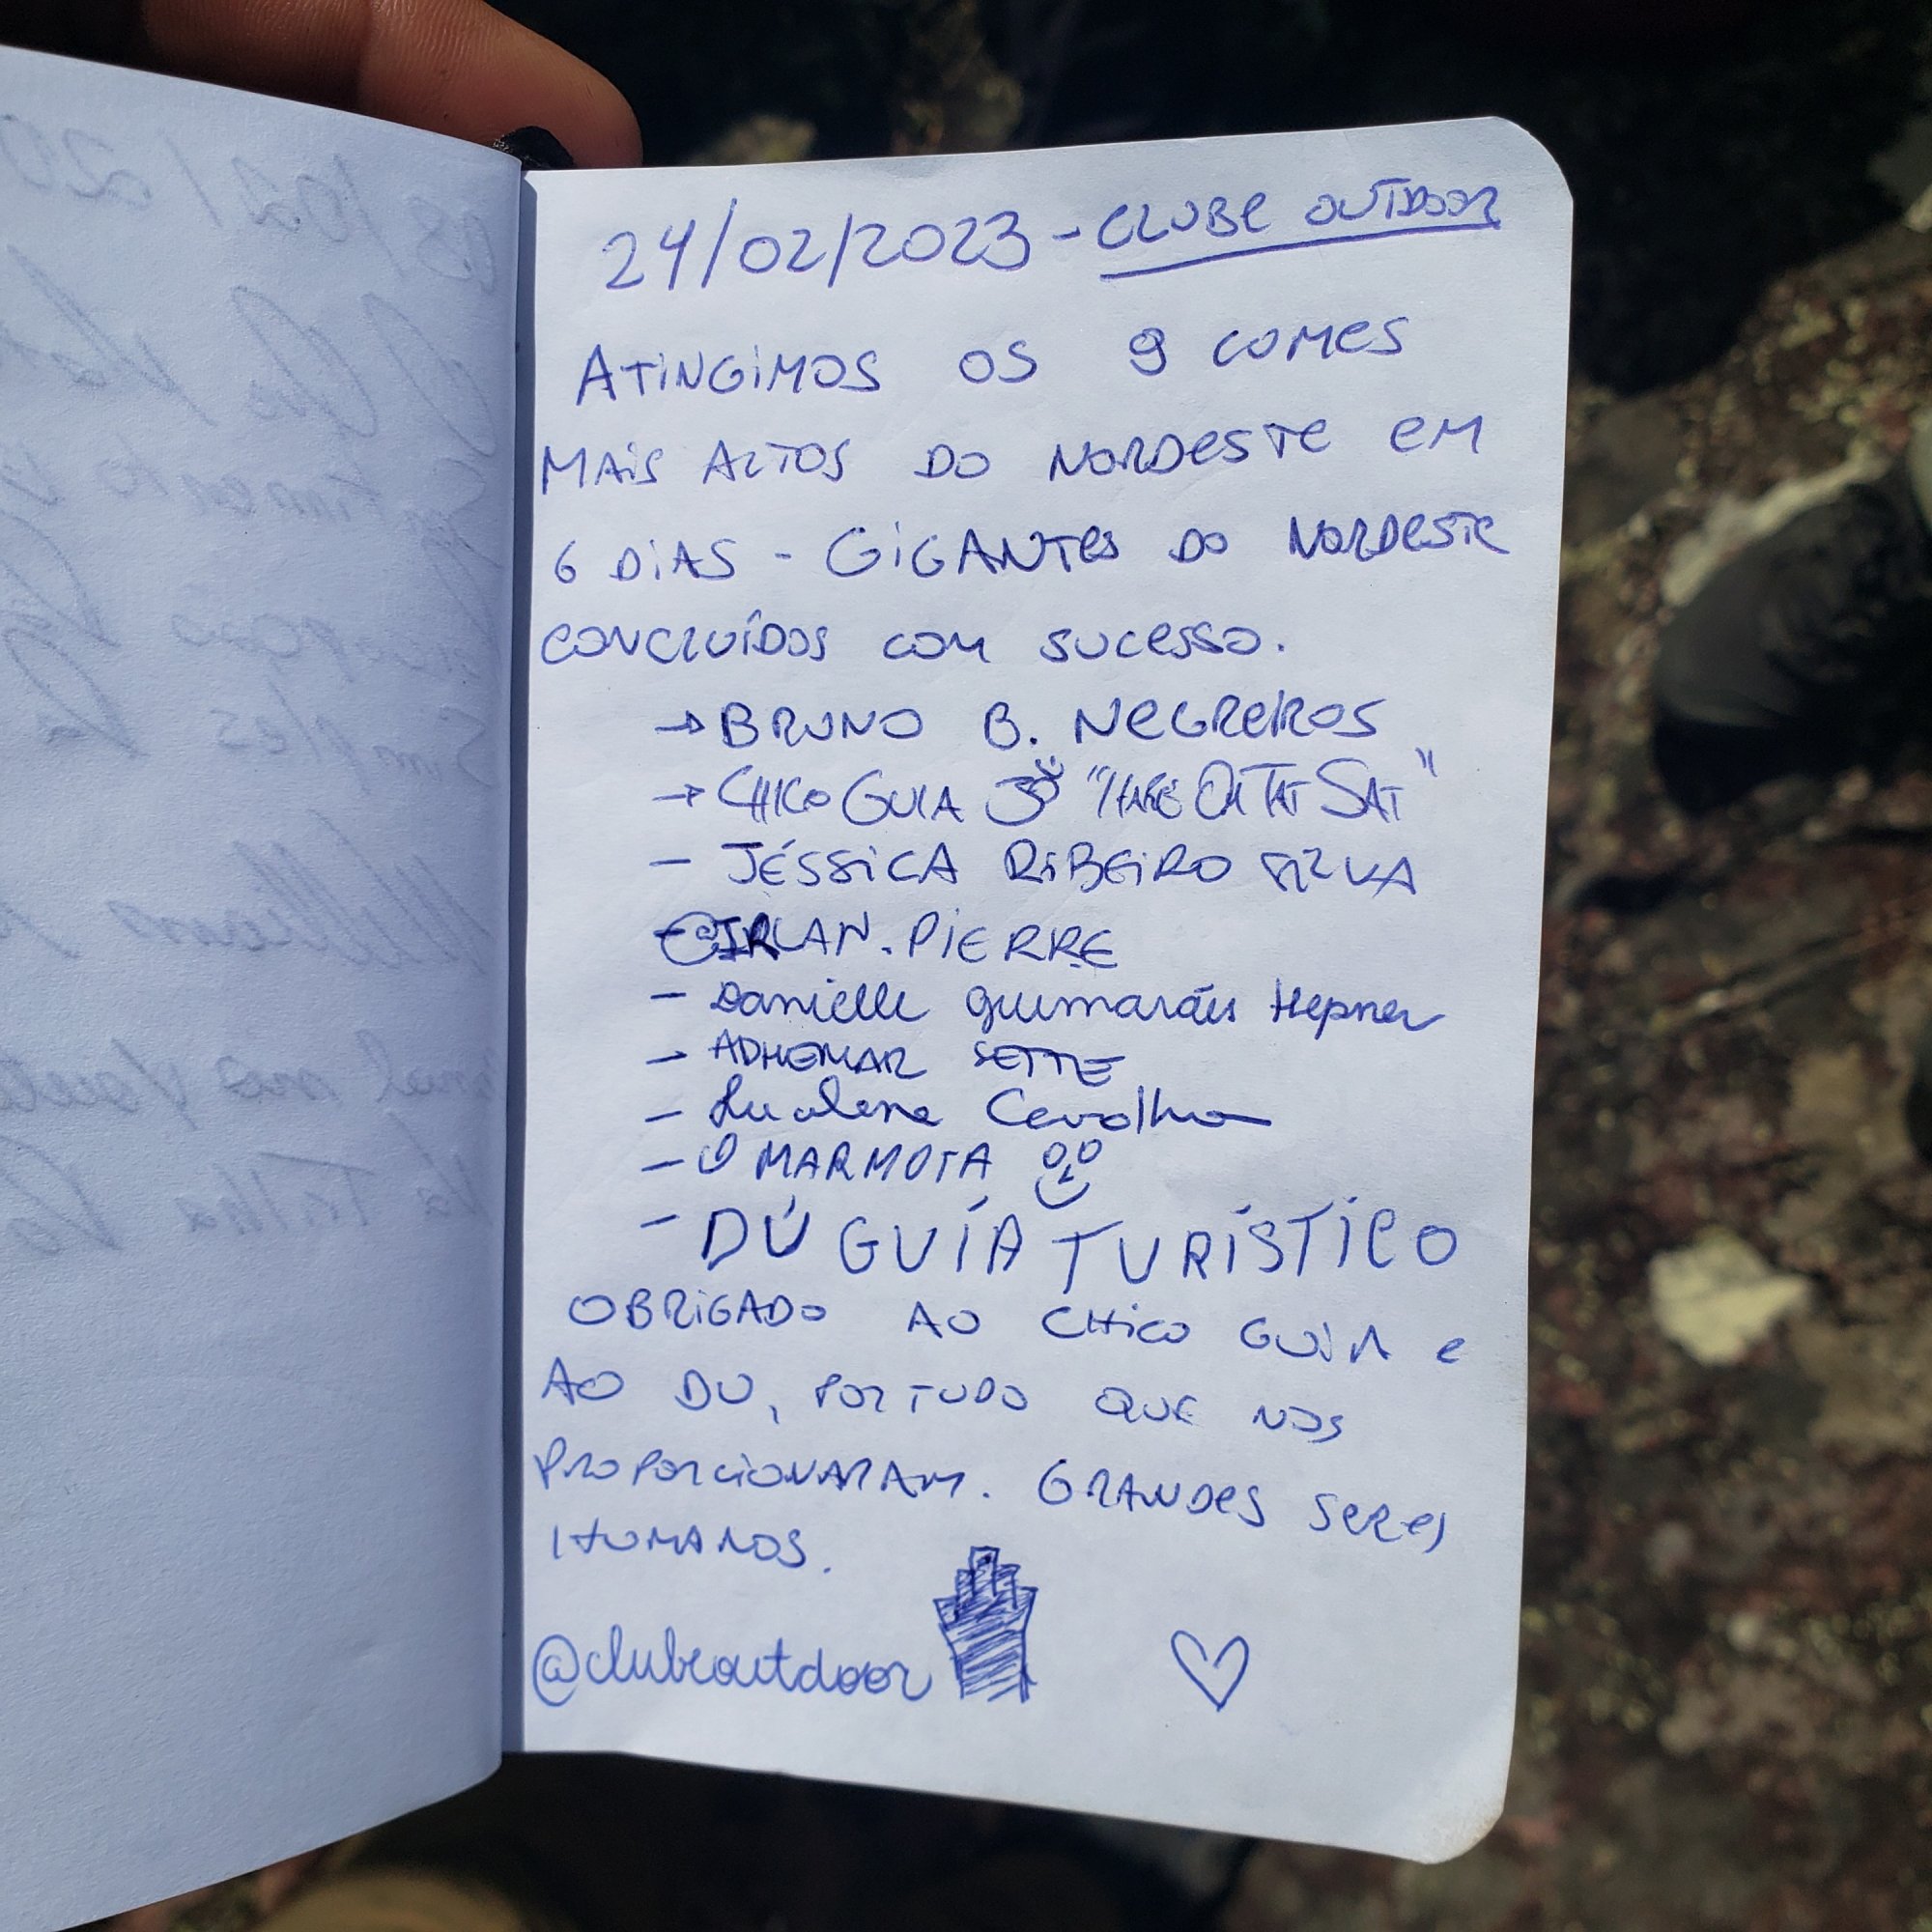 24/02/2023 - CLUBE OUTDOOR
ATINGIMOS OS 9 CUMES
MAIS ALTOS DO NORDESTE EM
6 DIAS - GIGANTES DO NORDESTE
CONCLUÍDOS COM SUCESSO.
→ BRUNO B. NEGREIROS
→ CHICO GUIA ॐ "HARE OM TAT SAT"
- JÉSSICA RIBEIRO SILVA
- @IRLAN.PIERRE
- Danielle Guimarães Hepner
- ADHEMAR SETTE
- Lucilene Carvalho
- O MARMOTA
- DÚ GUÍA TURÍSTICO
OBRIGADO AO CHICO GUIA E
AO DU, POR TUDO QUE NOS
PROPORCIONARAM. GRANDES SERES
HUMANOS.
@clubeoutdoor